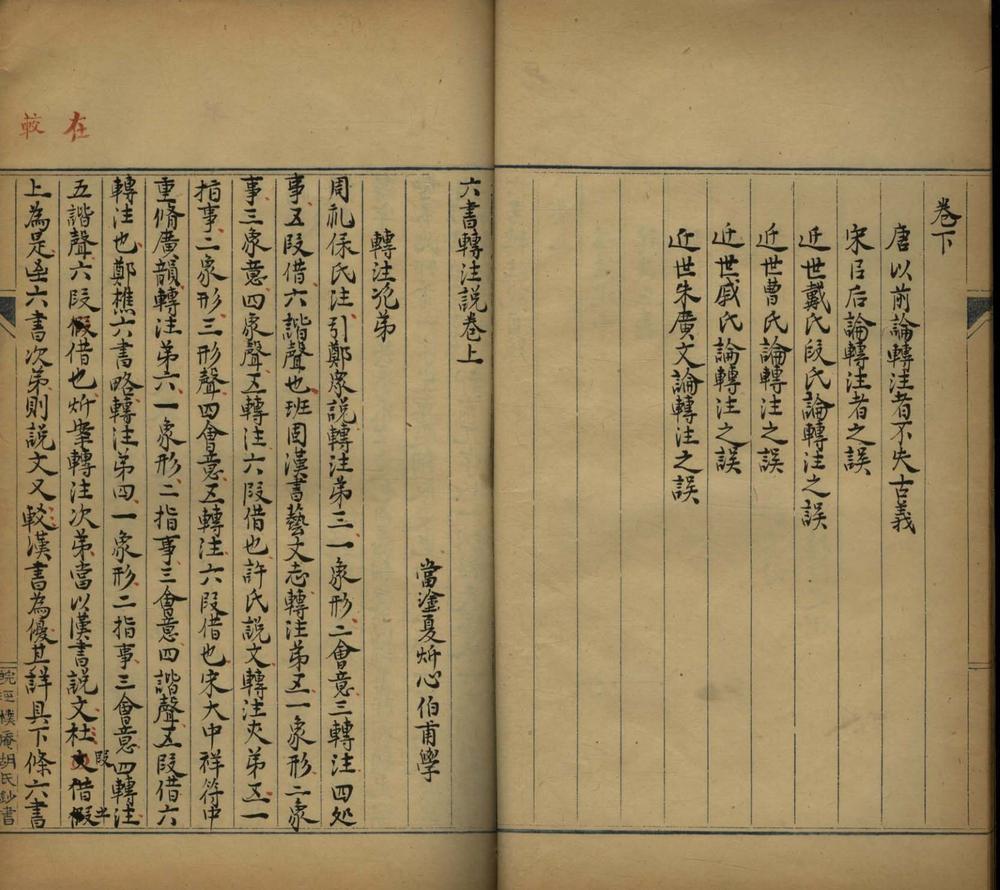 卷下
唐以前論轉注者不失古義
宋已后論轉注者之誤
近世戴氏段氏論轉注之誤
近世曹氏論轉注之誤
近世戚氏論轉注之誤
近世朱廣文論轉注之誤
六書轉注說卷上
當塗夏炘心伯甫學
轉注苐苐
周礼保氏注引鄭衆說轉注苐三一象形二會意三轉注四処
事五叚借六諧聲也班固漢書藝文志轉注苐五一象形二象
事三象意四象聲五轉注六叚借也許氏說文轉注夾苐五一
指事二象形三形聲四會意五轉注六叚借也宋大中祥符中
重脩廣韻轉注苐六一象形二指事三會意四諧聲五叚借六
轉注也鄭樵六書略轉注苐四一象形二指事三會意四轉注
五諧聲六叚借也炘案轉注次苐當以漢書說文杜借
叚
上為是至六書次苐則說文又較漢書為優其詳具下條六書
在
較
皖涇樸庵胡氏鈔書